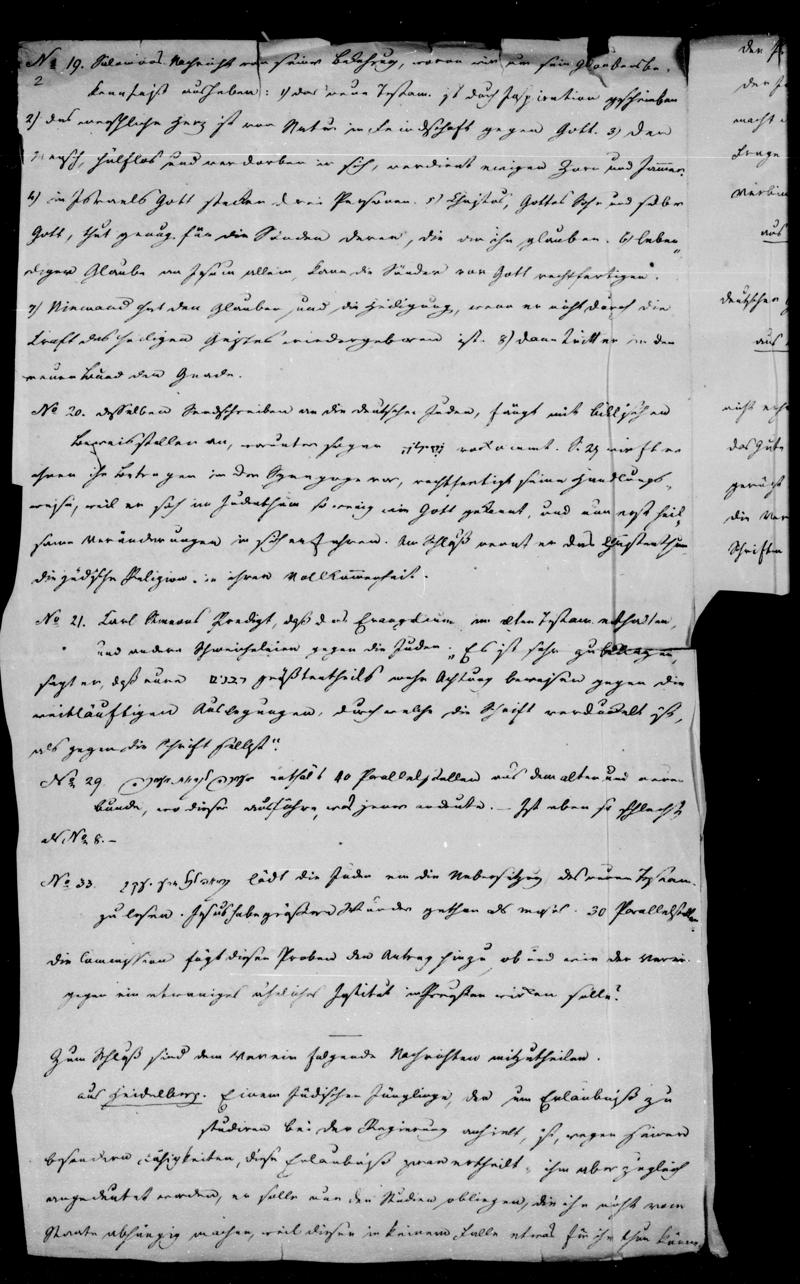 No 19. Salomos Nachricht von seiner Bekehrung, woran wir nur sein Glaubensbe-
2
kenntniß ausheben: 1) das neue Testam. ist durch Inspiration geschrieben
2) das menschliche Herz ist von Natur in Feindschaft gegen Gott. 3) Der
Mensch, hülflos und verdorben in sich, verdient ewigen Zorn und Jammer.
4) in Israels Gott stecken drei Personen. 5) Christus, Gottes Sohn und selber
Gott, thut genug für die Sünden derer, die an ihn glauben. 6) leben-
diger Glaube an Jesum allein, kann die Sünder vor Gott rechtfertigen.
7) Niemand hat den Glauben und die Heiligung, wenn er nicht durch die
Kraft des heiligen Geistes wiedergeboren ist. 8) dann tritt er in den
neuen Bund der Gnade.
No 20. desselben Sendschreiben an die deutschen Juden, fängt mit biblischen
Beweisstellen an, worunter sogar vorkommt. S. 29 wirft er
ihnen ihr Betragen in der Synagoge vor, rechtfertigt seine Handlungs-
weise, weil er sich im Judenthum so wenig wie Gott gekannt, und nun erst heil-
same Veränderungen in sich erfahren. Am Schluß nennt er das Christenthum
die jüdische Religion in ihrer Vollkommenheit.
No 21. Carl Simeons Predigt, daß das Evangelium im alten Testam. enthalten,
und andere Schmeicheleien gegen die Juden. „Es ist sehr zu beklagen,
sagt er, daß eure רבנים größtentheils mehr Achtung beweisen gegen die
weitläuftigen Auslegungen, durch welche die Schrift verdunkelt ist,
als gegen die Schrift selbst".
No 29. enthält 40 Parallelstellen aus dem alten und neuen
Bunde, wo dieser ausführe, was jener andeute. — Ist eben so schlecht
als No 8. —
No 33. lädt die Juden ein die Uebersetzung des neuen Testam.
zu lesen. Jesus habe größere Wunder gethan als Moses. 30 Parallelstellen.
Die Commission fügt diesen Proben den Antrag hinzu, ob und wie der Verein
gegen ein etwaniges ähnliches Institut in Preußen wirken solle?
Zum Schluß sind dem Verein folgende Nachrichten mitzutheilen.
aus Heidelberg. Einem Jüdischen Jünglinge, der um Erlaubniß zu
studiren bei der Regierung anhielt, ist, wegen seiner
besondern Fähigkeiten, diese Erlaubniß zwar ertheilt, ihm aber zugleich
angedeutet worden, er solle nur den Studien obliegen, die ihn nicht vom
Staate abhängig machen, weil dieser in keinem Falle etwas für ihn thun könne
der
macht
Frage
aus
deutschen
aus
nicht
das Gute
gerückt
die Ver
Schriften